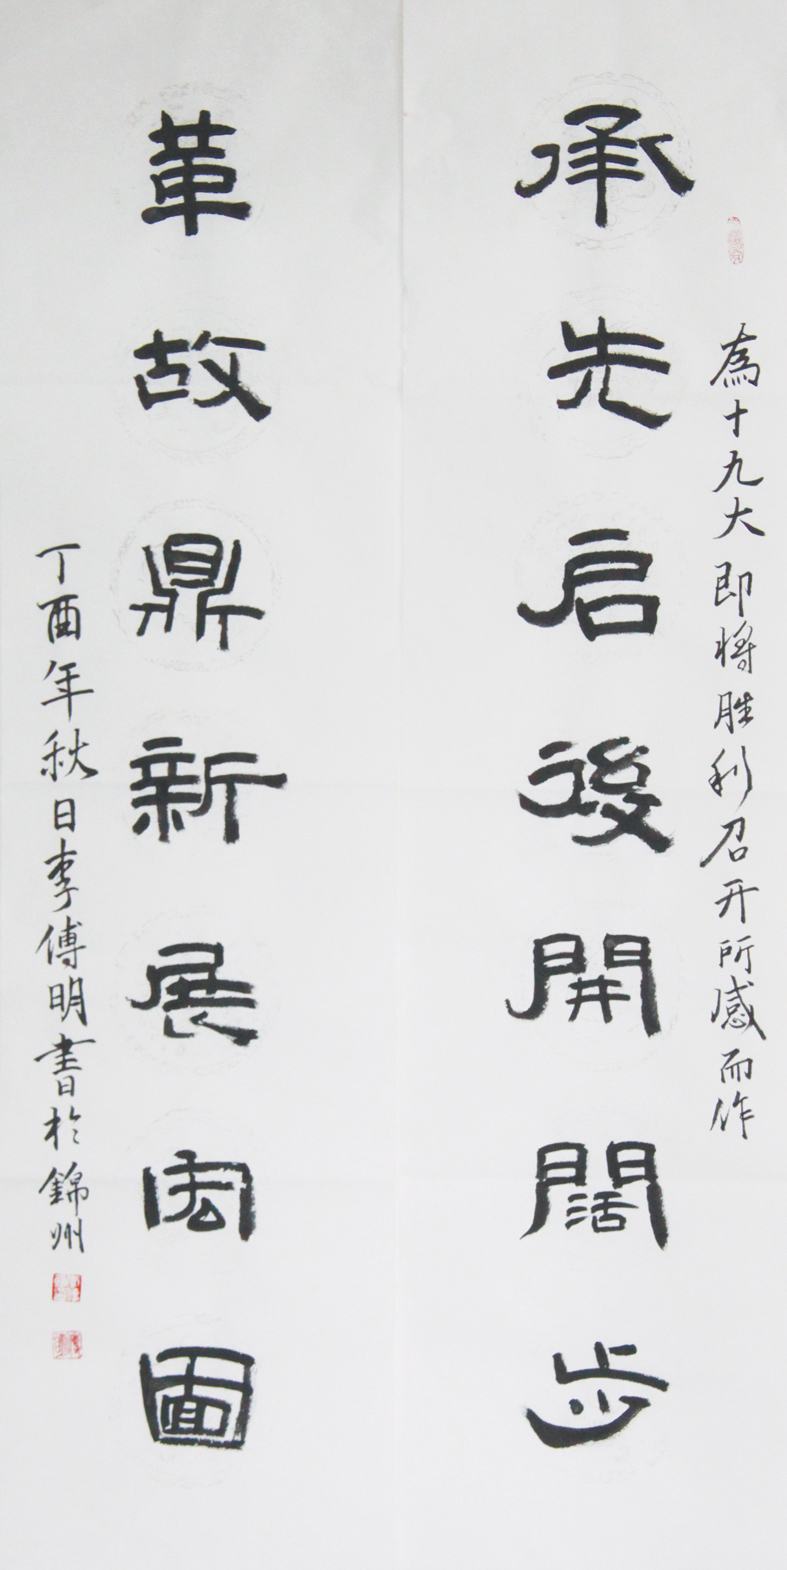 為十九大即将胜利召开所感而作
承先启後開闊步
革故鼎新展宏圖
丁酉年秋日李傅明書於錦州